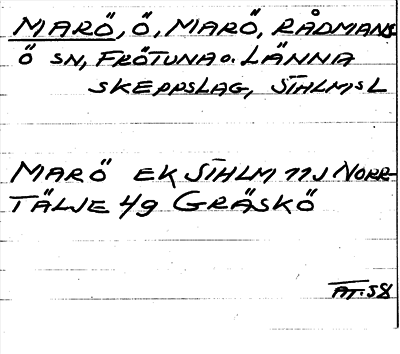 MARÖ, Ö, MARÖ, RÅDMANS
Ö SN, FRÖTUNA O. LÄNNA
SKEPPSLAG, STHLMS L
MARÖ EK STHLM 11J NORR-
TÄLJE 4g GRÄSKÖ
AT. 58